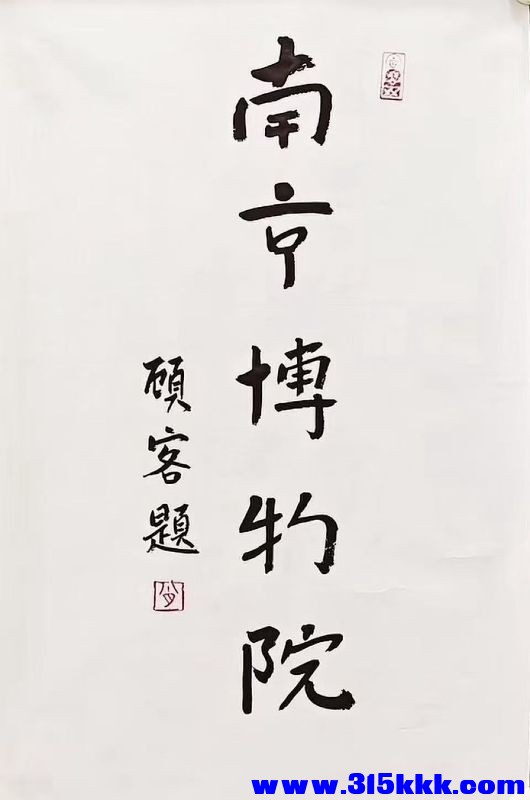 南京博物院
頋客題
www.315kkk.com